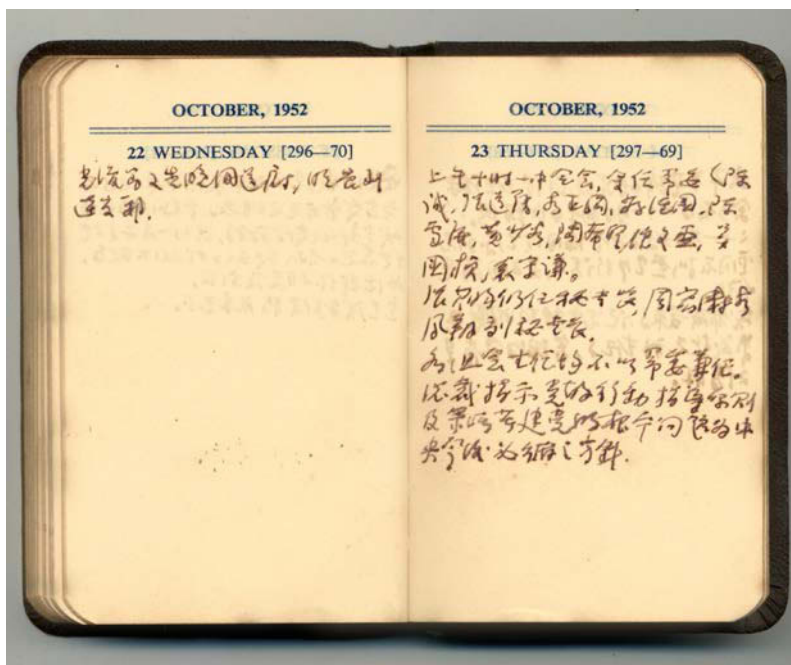 OCTOBER, 1952
22 WEDNESDAY [296—70]
OCTOBER, 1952
23 THURSDAY [297—69]
上午十时一中全会,全任常委(陈
诚,张道藩,谷正纲,蒋经国,陈
雪屏,黄少谷,陶希圣,倪文亚,吴
国桢,袁守谦。
张其昀仍任秘书长,周宏涛谷
凤翔副秘书长.
各组会主任均不以常委兼任。
总裁指示党的行动指导原则
及策略等建党的根本问题为中
央今后必循之方針.